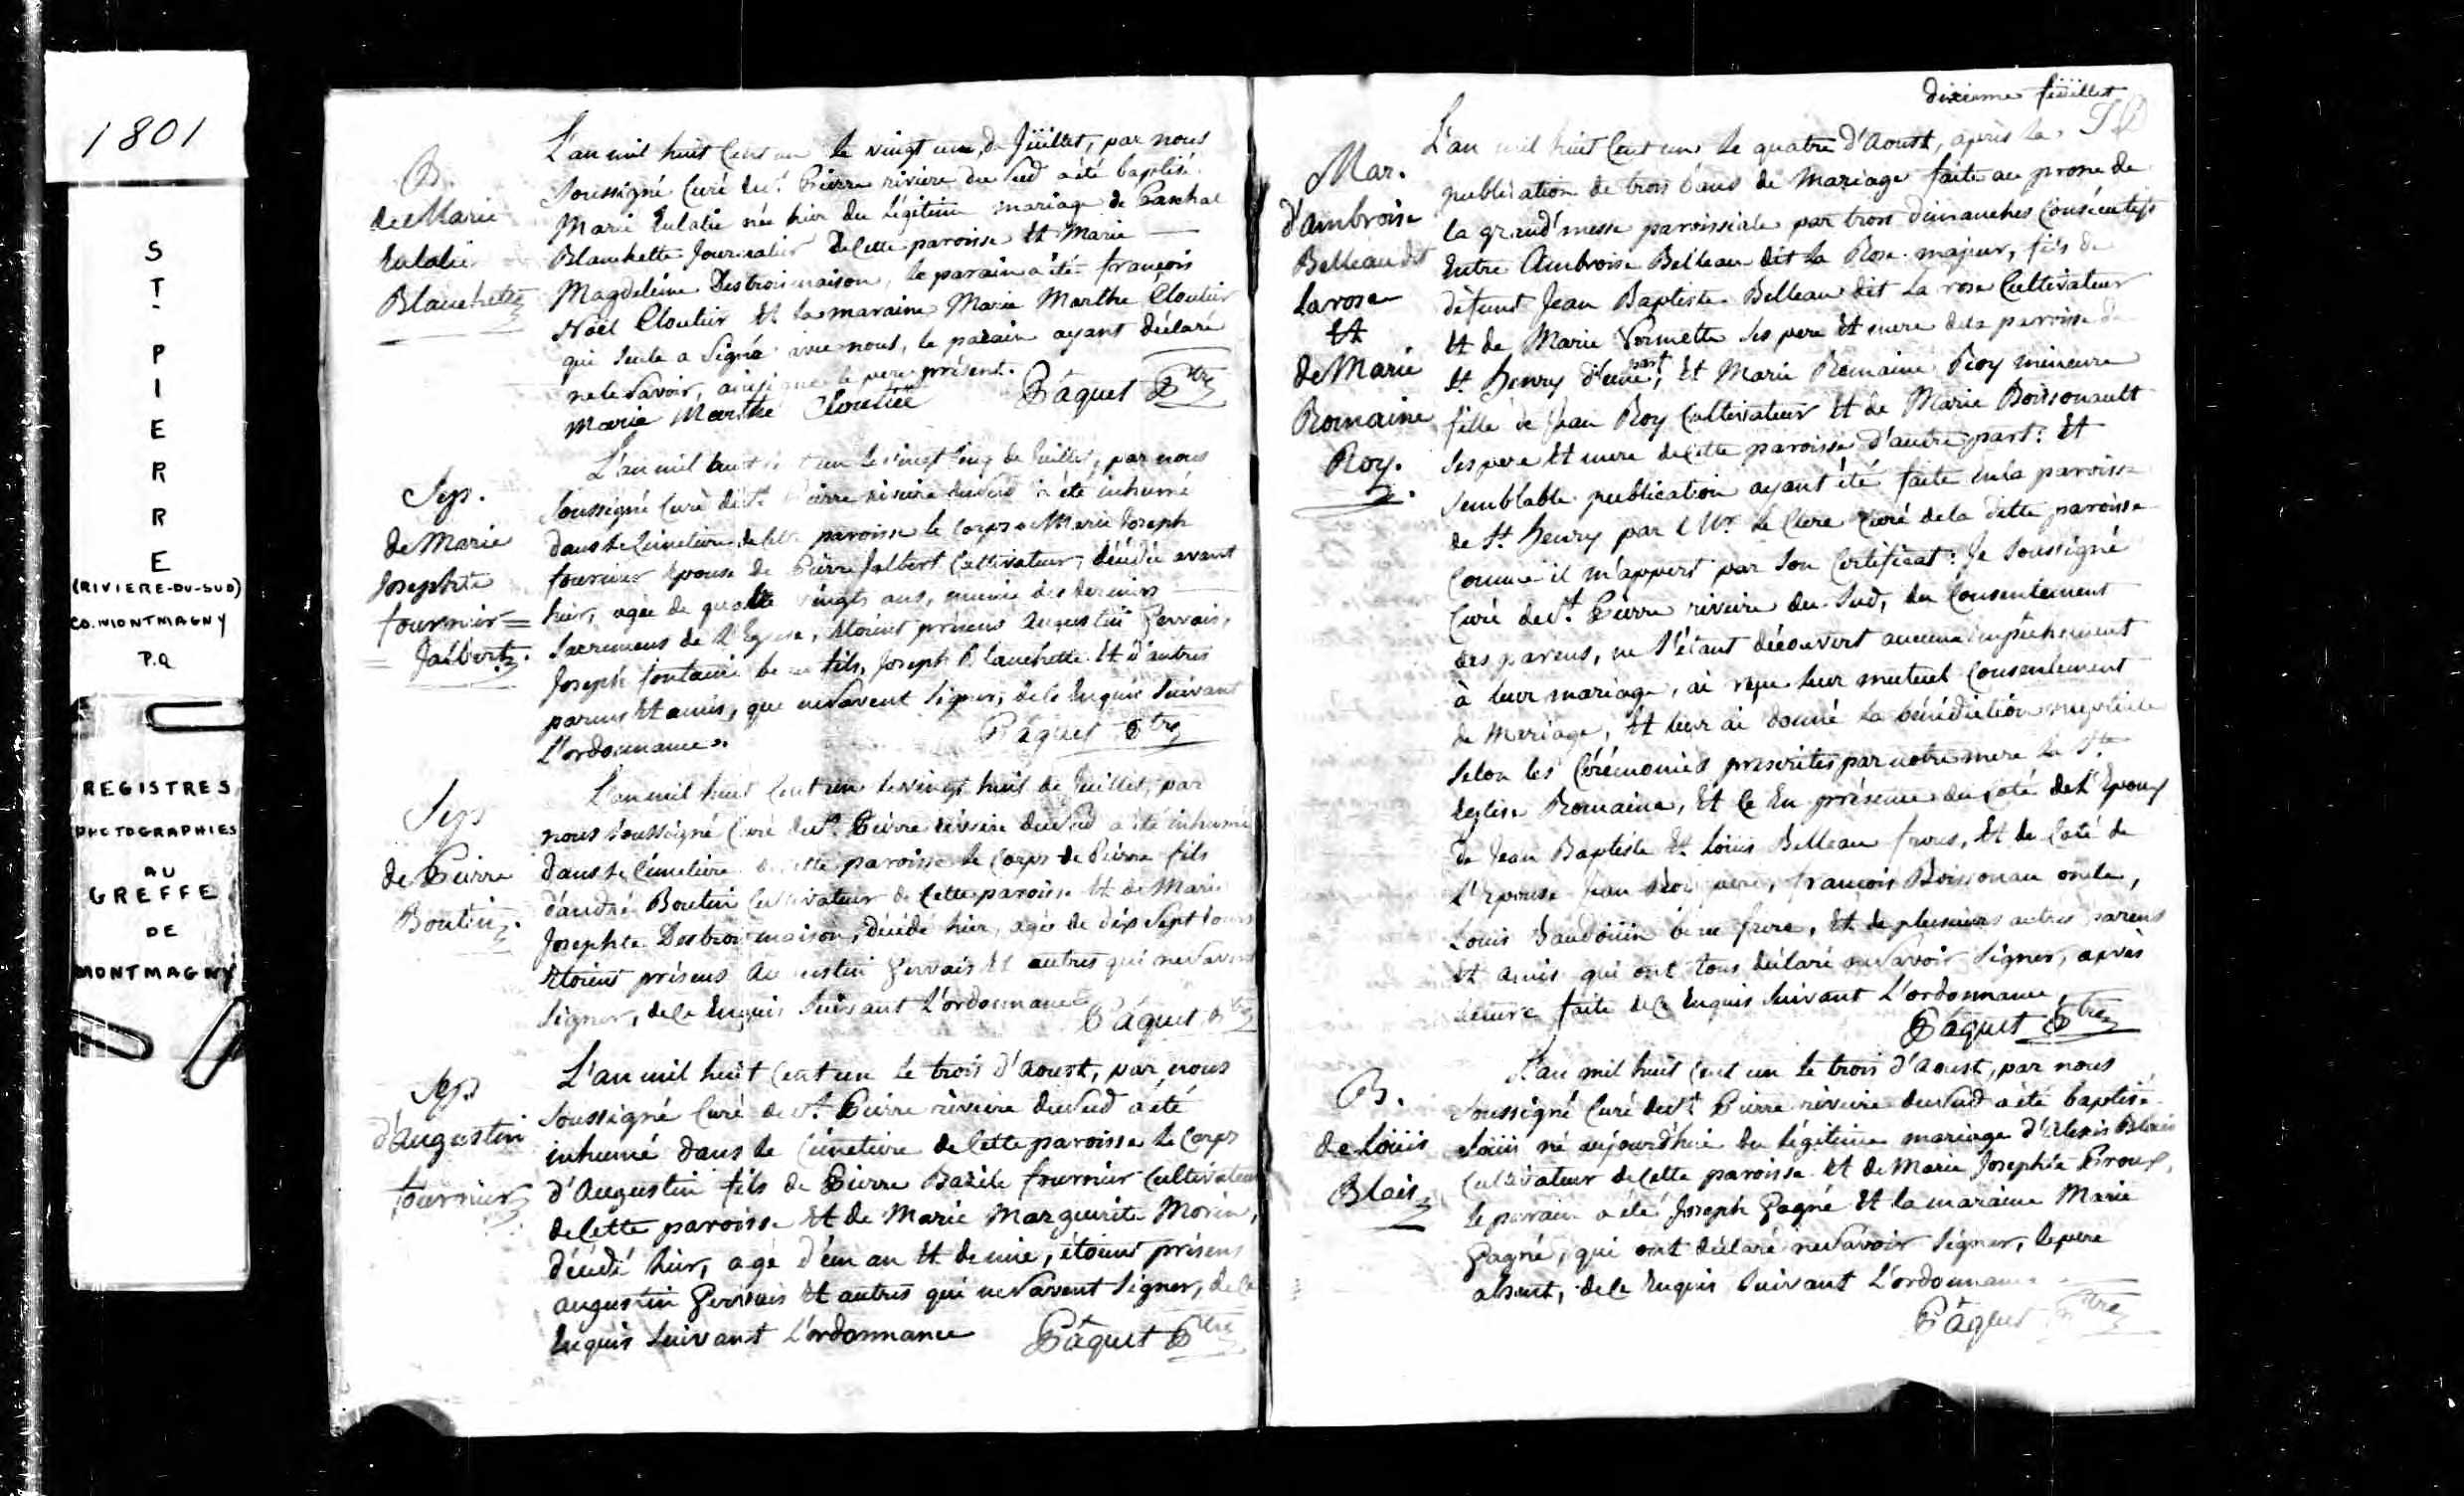 1801
S
T
-
P
I
E
R
R
E
(RIVIERE-DU-SUD)
CO. MONTMAGNY
P.Q
REGISTRES
PHOTOGRAPHIES
AU
GREFFE
DE
MONTMAGNY
B.
de Marie
Eulalie
Blanchette
L'an mil huit Cent un le vingt une de Juillet, par nous
Soussigné Curé de St. Pierre riviere du Sud a été baptisé
Marie Eulalie née hier du Légitime mariage de Paschal
Blanchette Journalier de Cette paroisse Et Marie
Magdeleine Destroismaison, le parain a été françois
Noël Cloutier Et la maraine Marie Marthe Cloutier
qui seule a Signé avec nous, le parain ayant déclaré
ne le Savoir, ainsi que le pere présent.
Marie Marthe Cloutier Pâquet Ptre
Sep.
de Marie
Josephte
fournier =
Jalbert.
L'an mil huit Cent un le vingt Cinq de Juillet, par nous
Soussigné Curé de St. Pierre riviere du Sud a été inhumé
dans le Cimetiere de Cette paroisse le Corps de Marie Joseph
fournier Epouse de Pierre Jalbert Cultivateur, décédée avant
hier, agée de quatre vingts ans, munie des derniers
Sacremens de l'Eglise, étoient présens Augustin Gervais,
Joseph fontaine beau fils, Joseph Blanchette Et d'autres
parens Et amis, que ne Savent Signer, de Ce Enquis Suivant
L'ordonnance.
Pâquet Ptre
Sep
de Pierre
Boutin.
L'an mil huit Cent un le vingt huit de Juillet, par
nous Soussigné Curé de St. Pierre riviere du Sud a été inhumé
dans le Cimetiere de Cette paroisse le Corps de Pierre fils
d'andré Boutin Cultivateur de Cette paroisse Et de Marie
Josephte Destroismaison, décédé hier, agé de dix Sept Jours
étoient présens Augustin Gervais Et autres qui ne Savent
Signer, de Ce Enquis Suivant L'ordonnance
Pâquet Ptre
Sep.
d'Augustin
fournier
L'an mil huit Cent un le trois d'Aoust, par nous
Soussigné Curé de St. Pierre riviere du Sud a été
inhumé dans le Cimetiere de Cette paroisse le Corps
d'Augustin fils de Pierre Bazile fournier Cultivateur
de Cette paroisse Et de Marie Marguerite Morin,
décédé hier, agé d'un an Et demie, étoient présens
augustin Gervais Et autres qui ne Savent Signer, de Ce
Enquis Suivant L'ordonnance Pâquet Ptre
dixieme feüillet
Mar.
d'ambroise
Belleau dit
Larose
Et
de Marie
Romaine
Roy.
L'an mil huit Cent un le quatre d'Aoust, après la
publication de trois bans de Mariage faite au prone de
la grand'messe paroissiale par trois dimanches Consécutifs
Entre Ambroise Belleau dit la Rose majeur, fils de
défunt Jean Baptiste Belleau dit La rose Cultivateur
Et de Marie Vermette Ses pere Et mere de la paroisse de
St. Henry d'une part, Et Marie Romaine Roy mineure
fille de Jean Roy Cultivateur Et de Marie Boissonault
Ses pere Et mere de Cette paroisse d'autre part: Et
Semblable publication ayant été faite en la paroisse
de St. Henry par Mr. Le Clerc Curé de la ditte paroisse
Comme il m'appert par Son Certificat: Je Soussigné
Curé de St. Pierre riviere du Sud, du Consentement
des parens, ne S'étant découvert aucun Empêchement
à leur mariage, ai reçu leur mutuel Consentement
de Mariage, Et leur ai donné la bénédiction nuptiale
Selon les Cérémonies prescrites par notre mere la Ste.
Eglise Romaine, Et Ce En présence du Coté de L'Epoux
de Jean Baptiste Et Loüis Belleau freres, Et de Coté de
L'Epouse Jean Roy pere, françois Boissonau oncle,
Louis Baudoüin beau frere, Et de plusieurs autres parens
Et amis qui ont tous déclaré ne Savoir Signer, après
lecture faite de Ce Enquis Suivant L'ordonnance,
Pâquet Ptre
B.
de Loüis
Blais
L'an mil huit Cent un le trois d'Aoust, par nous
Soussigné Curé de St. Pierre riviere du Sud a été baptisé
Loüis né aujourd'hui du Légitime mariage d'Alexis Blais
Cultivateur de Cette paroisse Et de Marie Josephte Proux,
le parain a été Joseph Gagné Et la maraine Marie
Gagné, qui ont déclaré ne Savoir Signer, le pere
absent, de Ce Enquis Suivant L'ordonnance
Pâquet Ptre